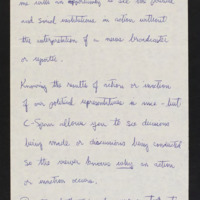 me with an opportunity to see our political
and social institutions in action without
the interpretation of a news broadcaster
or reporter.
Knowing the results of actions or inactions
of our political representatives is nice - but
C-Span allows you to see decisions
being made or discussions being conducted
so the viewer knows why an action
or inaction occurs.